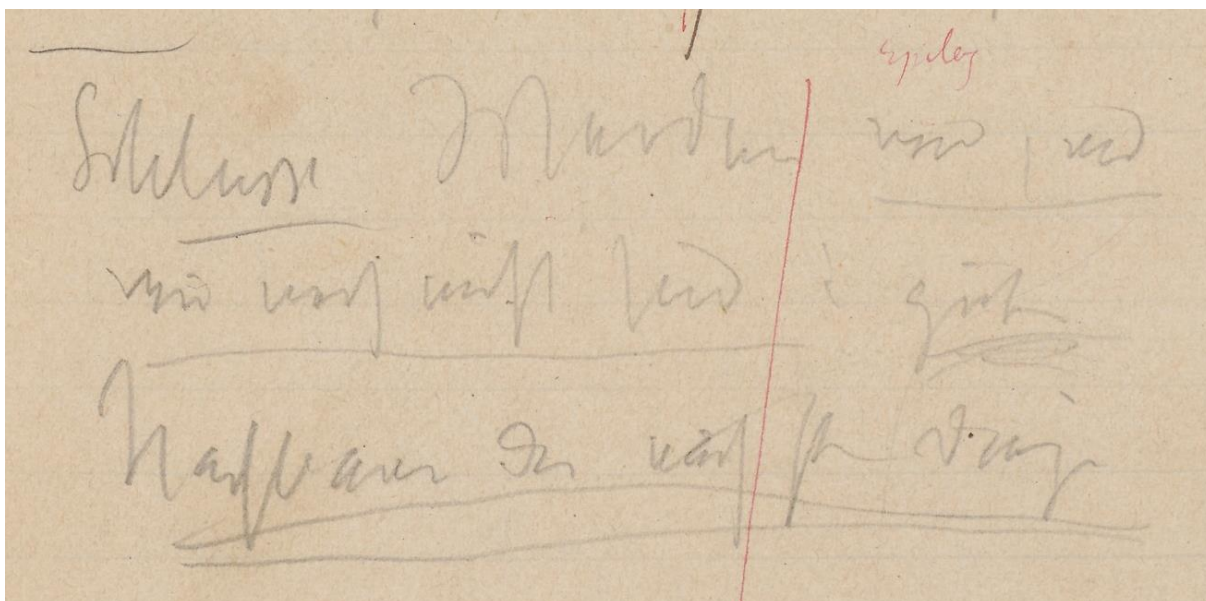 Epilog
Schlusse Werden wir, was
wir noch nicht sind : gute
Nachbarn der nächsten Dinge